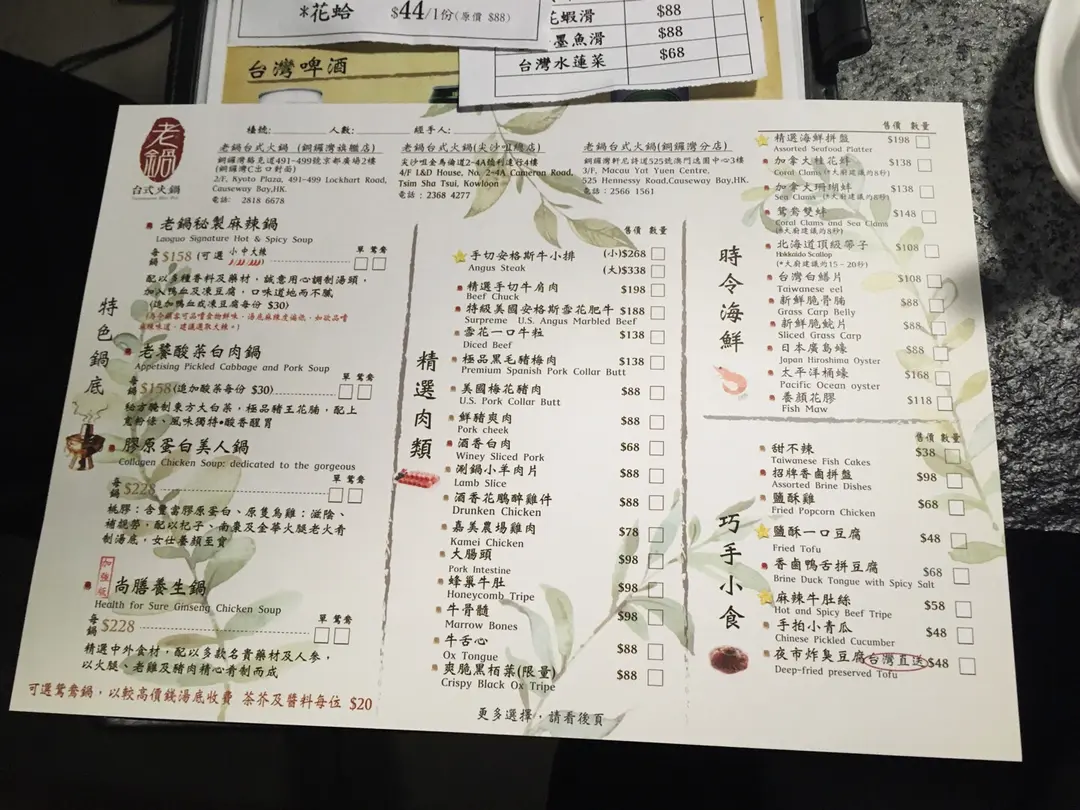 *花蛤 $44/1份(原價 $88)
花蝦滑 $88
墨魚滑 $88
台灣水蓮菜 $68
台灣啤酒
老鍋
台式火鍋
檯號: 人數: 經手人:
老鍋台式火鍋 (銅鑼灣旗艦店)
銅鑼灣駱克道491-499號京都廣場2樓
(銅鑼灣C出口對面)
2/F, Kyoto Plaza, 491-499 Lockhart Road,
Causeway Bay,HK.
電話: 2818 6678
老鍋台式火鍋(尖沙咀總店)
尖沙咀金馬倫道2-4A德利運行4樓
4/F I&D House, No. 2-4A Cameron Road,
Tsim Sha Tsui, Kowloon
電話:2368 4277
老鍋台式火鍋(銅鑼灣分店)
銅鑼灣軒尼詩道525號澳門逸園中心3樓
3/F, Macau Yat Yuen Centre,
525 Hennessy Road,Causeway Bay,HK.
電話:2566 1561
特色鍋底
老鍋秘製麻辣鍋
Laoguo Signature Hot & Spicy Soup
單 鴛鴦
每鍋 $158 (可選 小中大辣
配以多種香料及藥材,誠意用心調制湯頭,
加入鴨血及凍豆腐,口味道地而不膩
(追加鴨血或凍豆腐每份 $30)
老饕酸菜白肉鍋
Appetising Pickled Cabbage and Pork Soup
單 鴛鴦
每鍋 $158(追加酸菜每份 $30)
秘方醃制東方大白菜,極品豬王花腩,配上
寬粉條、風味獨特•酸香醒胃
膠原蛋白美人鍋
Collagen Chicken Soup: dedicated to the gorgeous
單 鴛鴦
每鍋 $228
桃膠:含豐富膠原蛋白、原隻烏雞:滋陰、
補靚勢,配以杞子、南棗及金華火腿老火肴
制湯底,女仕養顏至寶
加強版
尚膳養生鍋
Health for Sure Ginseng Chicken Soup
單 鴛鴦
每鍋 $228
精選中外食材,配以多款名貴藥材及人參,
以火腿、老雞及豬肉精心肴制而成
可選鴛鴦鍋,以較高價錢湯底收費 茶芥及醬料每位 $20
精選肉類
售價 數量
手切安格斯牛小排 (小)$268
Angus Steak (大)$338
精選手切牛肩肉 $198
Beef Chuck
特級美國安格斯雪花肥牛 $188
Surpreme U.S. Angus Marbled Beef
雪花一口牛粒 $138
Diced Beef
極品黑毛豬梅肉 $138
Premium Spanish Pork Collar Butt
美國梅花豬肉 $88
U.S. Pork Collar Butt
鮮豬爽肉 $88
Pork cheek
酒香白肉 $68
Winey Sliced Pork
涮鍋小羊肉片 $88
Lamb Slice
酒香花鵰醉雞件 $88
Drunken Chicken
嘉美農場雞肉 $78
Kamei Chicken
大腸頭 $98
Pork Intestine
蜂巢牛肚 $98
Honeycomb Tripe
牛骨髓 $98
Marrow Bones
牛舌心 $88
Ox Tongue
爽脆黑栢葉(限量) $88
Crispy Black Ox Tripe
更多選擇,請看後頁
時令海鮮
售價 數量
精選海鮮拼盤 $198
Assorted Seafood Platter
加拿大桂花蚌 $138
Coral Clams (*大廚建議約8秒)
加拿大珊瑚蚌 $138
Sea Clams (*大廚建議約8秒)
鴛鴦雙蚌 $148
Coral Clams and Sea Clams
(*大廚建議約8秒)
北海道頂級帶子 $108
Hokkaido Scallop
(*大廚建議約15-20秒)
台灣白鱔片 $108
Taiwanese eel
新鮮脆骨腩 $88
Grass Carp Belly
新鮮脆鯇片 $88
Sliced Grass Carp
日本廣島蠔 $88
Japan Hiroshima Oyster
太平洋桶蠔 $168
Pacific Ocean oyster
養顏花膠 $118
Fish Maw
巧手小食
售價 數量
甜不辣 $38
Taiwanese Fish Cakes
招牌香鹵拼盤 $98
Assorted Brine Dishes
鹽酥雞 $68
Fried Popcorn Chicken
鹽酥一口豆腐 $48
Fried Tofu
香鹵鴨舌拼豆腐 $68
Brine Duck Tongue with Spicy Salt
麻辣牛肚絲 $58
Hot and Spicy Beef Tripe
手拍小青瓜 $48
Chinese Pickled Cucumber
夜市炸臭豆腐 台灣直送 $48
Deep-fried preserved Tofu